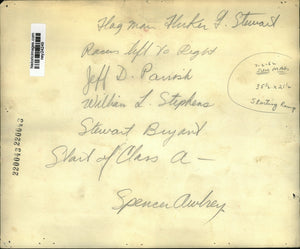 Flag man Flicker F. Stewart
Racers left to Right
Jeff D. Parrish
William L. Stephens
Stewart Bryant
Start of Class A —
Spencer Awbrey
35½ x 21½
Starting Ramp
220043
220043